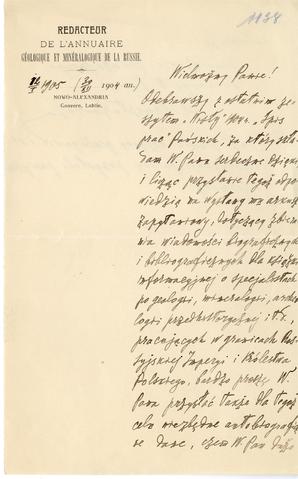 1138
REDACTEUR
DE L'ANNUAIRE
GÉOLOGIQUE ET MINÉRALOGIQUE DE LA RUSSIE.
1905 1904 an.)
NOWO-ALEXANDRIA
Gouvern. Lublin.
Wielmożny Panie!
Odebrawszy z ostatnim ze-
szytem „Wisły" 1904 r. Spis
prac Pańskich, za który skła-
dam W. Panu serdeczne dzięki
i licząc przysłanie tegoż odpo-
wiedzią na wysłany mu arkusz
zapytaniowy, dotyczący zbiera-
nia wiadomości biograficznych
i bibliograficznych dla książki
informacyjnej o specjalistach
po geologii, mineralogii, arche-
ologii przedhistorycznej i t. d.,
pracujących w granicach Ros-
syjskiej Imperyi i Królestwa
Polskiego, bardzo proszę W.
Pana przysłać także dla tegoż
celu niezbędne autobiografi-
czne dane, czem W. Pan